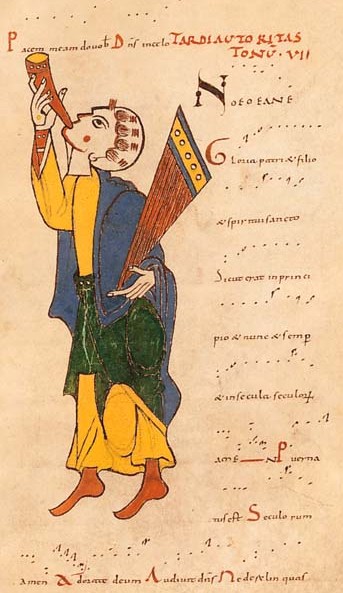 Pacem meam do vob Dns in celo TARDI AUTORITAS
TONŪ · VII
NOEOEANE
Gloria patri & filio
& spiritui sancto
Sicut erat in princi
pio & nunc & semp
& in secula seculorū
AMĒ — N Puer na
tus est Seculorum
amen Adorate deum Audivit dns Ne deselin quas